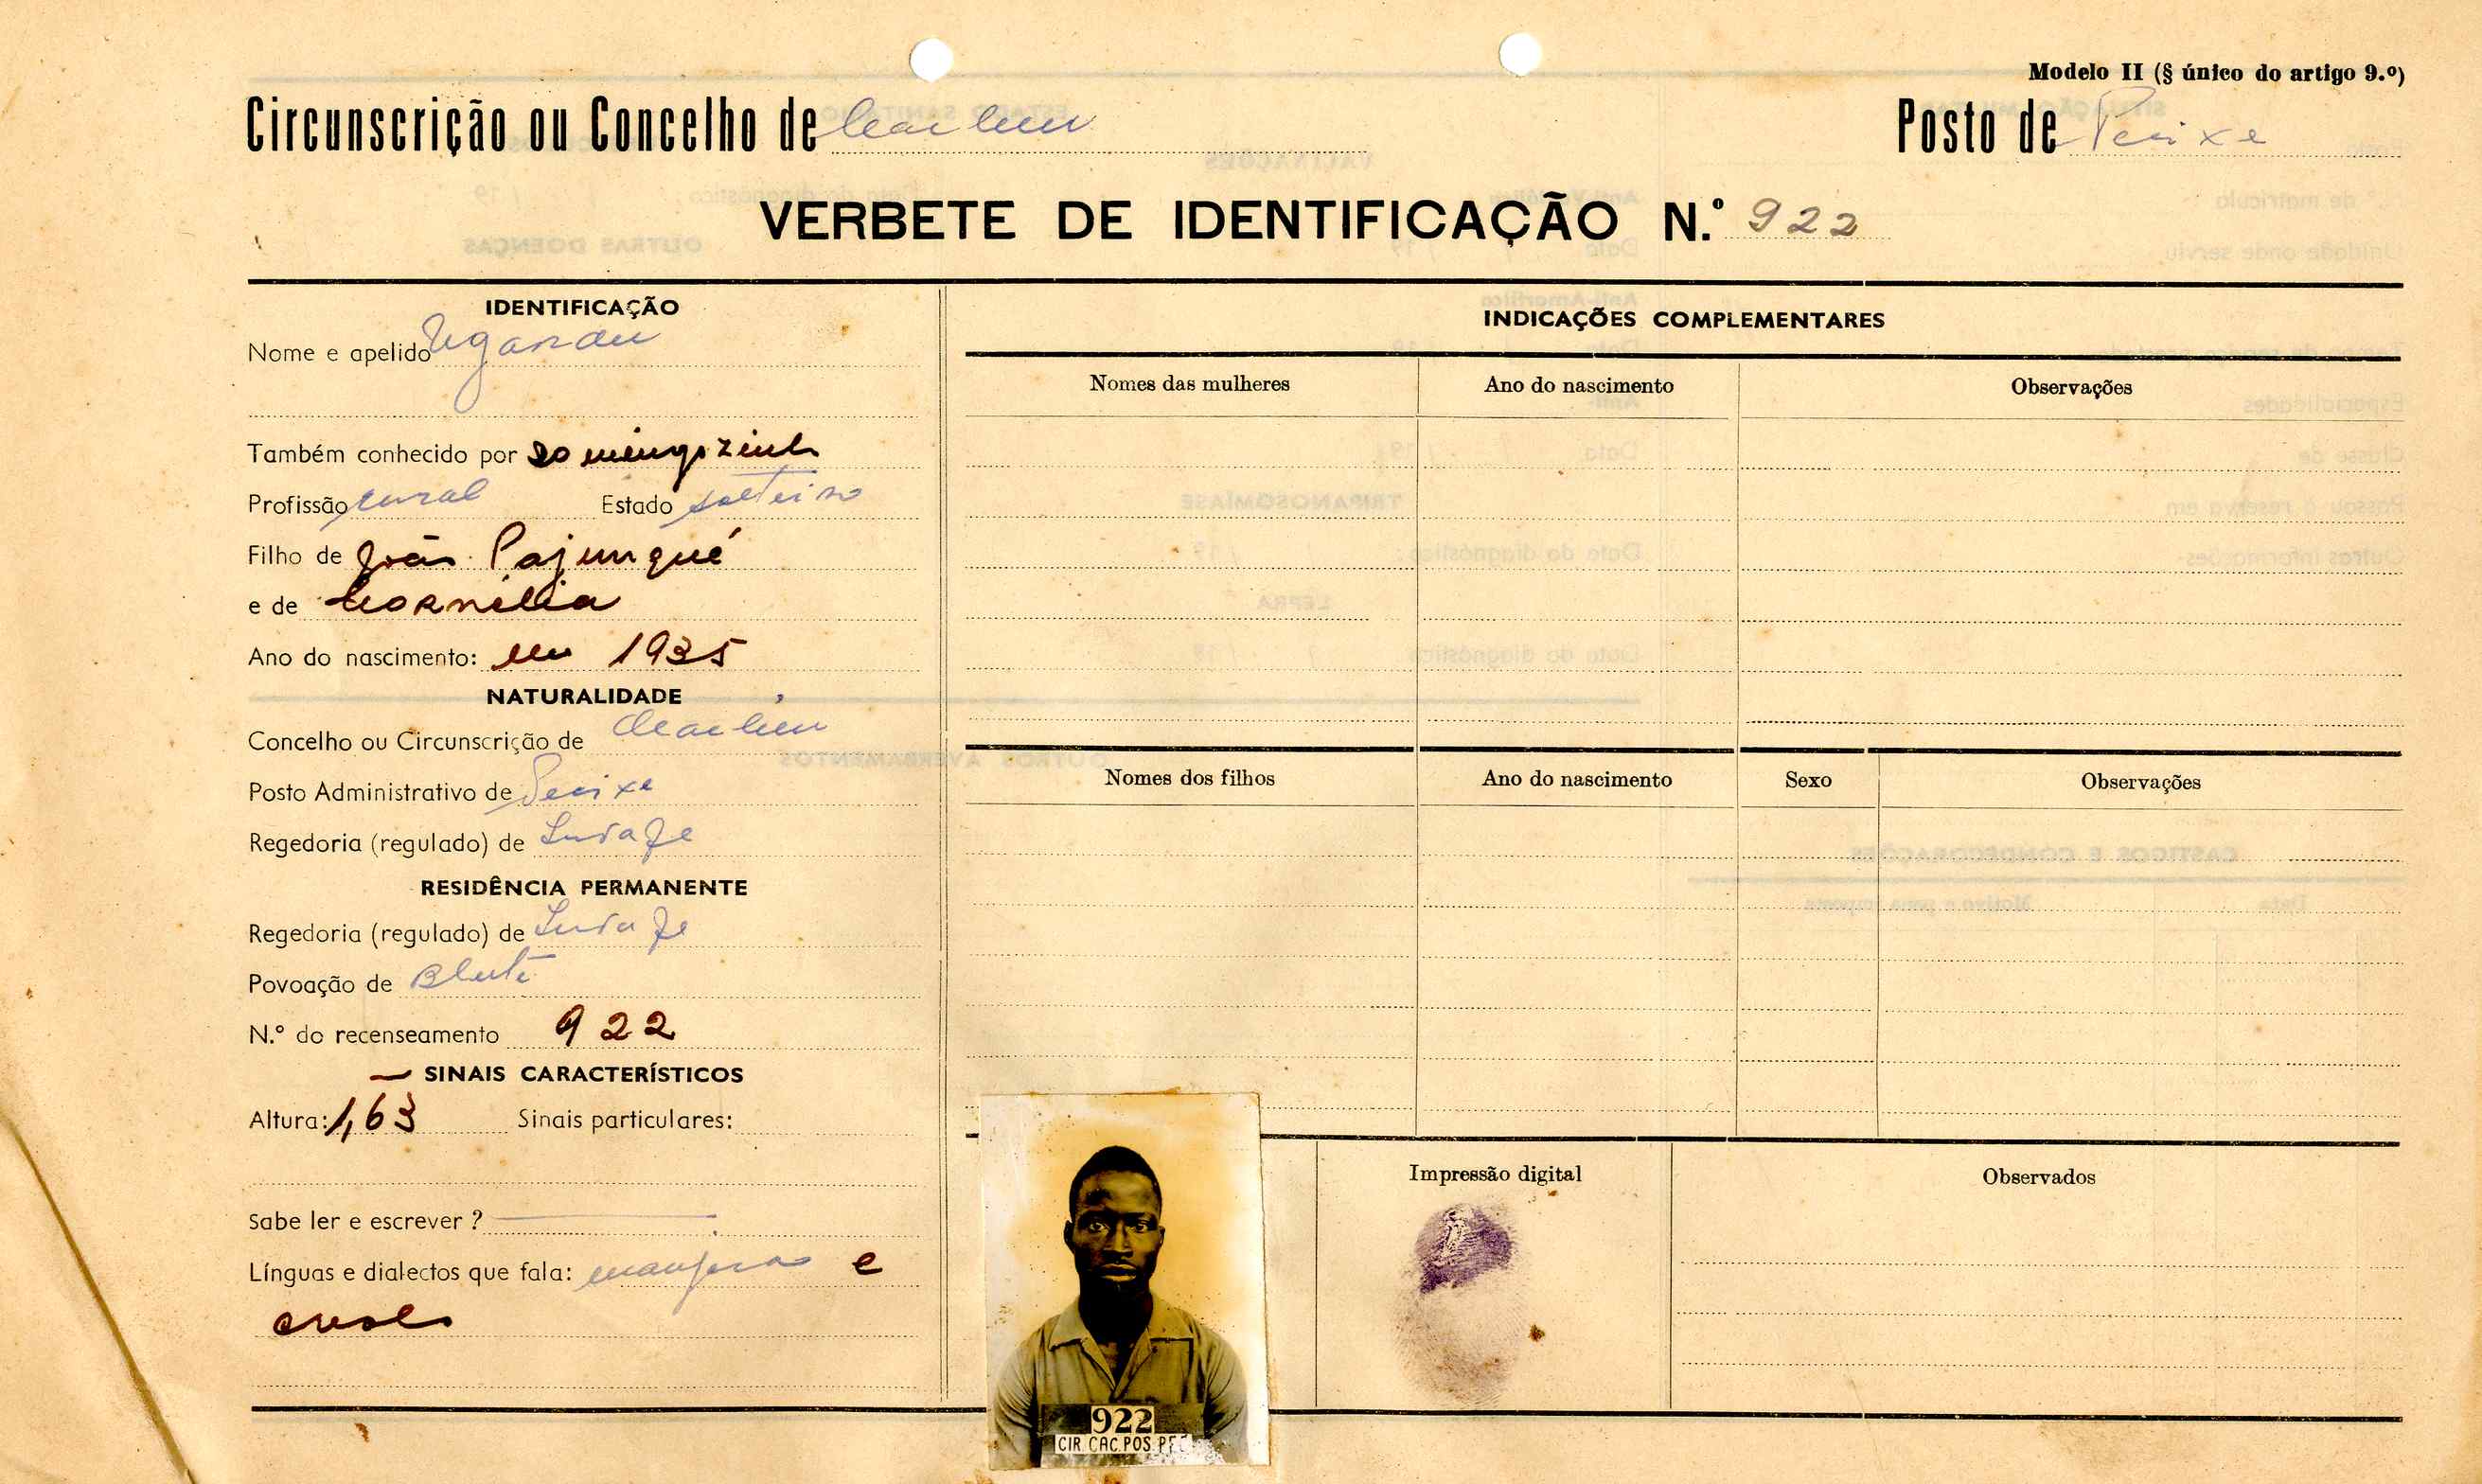 Modelo II (§ único do artigo 9.º)
Circunscrição ou Concelho de Cacheu Posto de Pecixe
VERBETE DE IDENTIFICAÇÃO N.º 922
IDENTIFICAÇÃO
Nome e apelido
Também conhecido por Domingozinho
Profissão rural Estado solteiro
Filho de João Pajunqué
e de Cornélia
Ano do nascimento: em 1935
NATURALIDADE
Concelho ou Circunscrição de Cacheu
Posto Administrativo de Pecixe
Regedoria (regulado) de
RESIDÊNCIA PERMANENTE
Regedoria (regulado) de
Povoação de
N.º do recenseamento 922
SINAIS CARACTERÍSTICOS
Altura: 1,63 Sinais particulares:
Sabe ler e escrever ?
Línguas e dialectos que fala: manjaco e
INDICAÇÕES COMPLEMENTARES
Nomes das mulheres Ano do nascimento Observações
Nomes dos filhos Ano do nascimento Sexo Observações
Impressão digital Observados
922
CIR. CAC. POS.